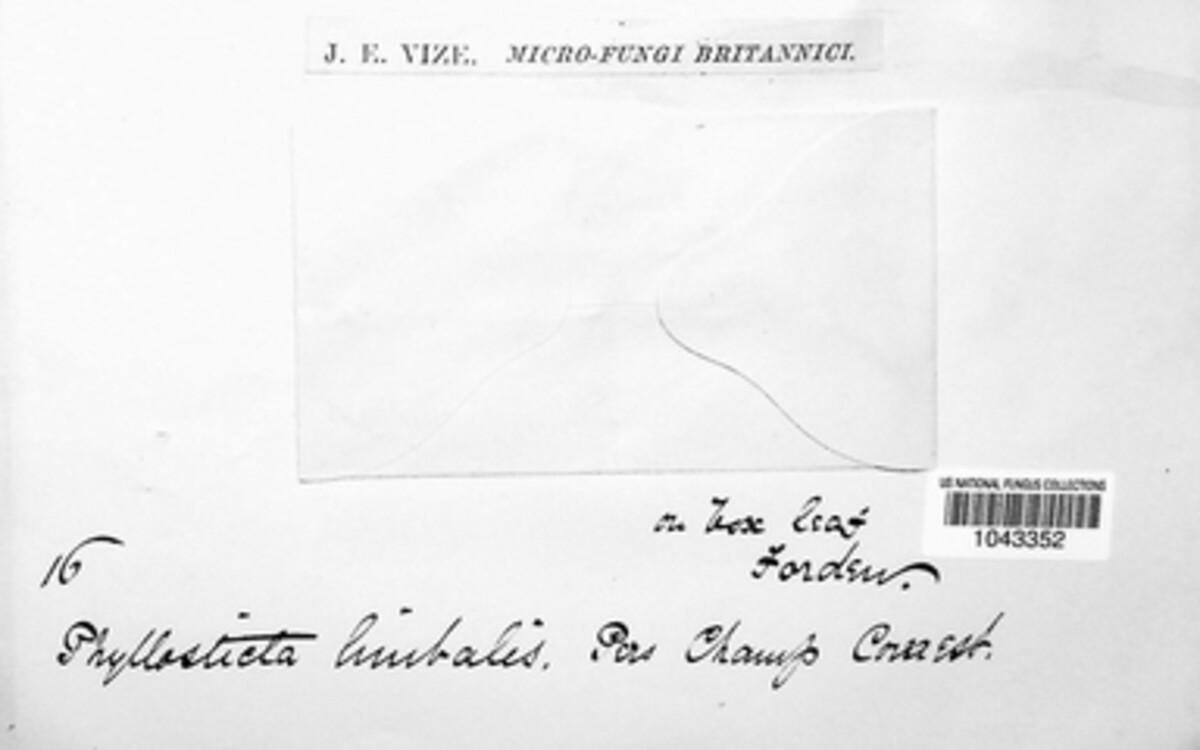 J. E. VIZE. MICRO-FUNGI BRITANNICI.
US NATIONAL FUNGUS COLLECTIONS
1043352
on box leaf
Forden.
16
Phyllosticta limbalis. Pers Champ